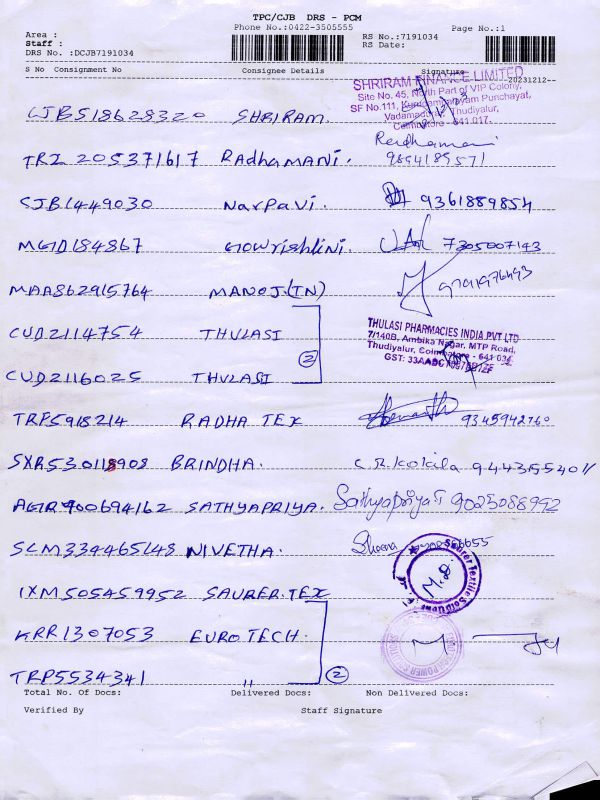 TPC/CJB DRS - PCM
Phone No.:0422-3505555
Page No.:1
Area :
Staff :
RS No.:7191034
DRS No. :DCJB7191034
RS Date:
S No Consignment No Consignee Details Signature 20231212
SHRIRAM FINANCE LIMITED
Site No. 45, North Part of VIP Colony,
SF No.111, Kurudampalayam Punchayat,
Vadamadurai, Thudiyalur,
Coimbatore - 641 017.
CJB518628320 SHRIRAM.
TRZ 205371617 Radhamani. Radhamani
9894189571
SJB1449030 Narpavi. 9361889854
MGD184867 Gowrishlini. 7305007143
MAA862915764 MANOJ(IN)
CUD2114754 THULASI
THULASI PHARMACIES INDIA PVT LTD
7/140B, Ambika Nagar, MTP Road,
Thudiyalur, Coimbatore - 641 034
GST: 33AABC
2
CUD2116025 THULASI
TRP5918214 RADHA TEX 9345942760
SXR530118908 BRINDHA. C.R.Kokila 9443555401
AGR900694162 SATHYAPRIYA. Sathyapriya 9025088992
SLM334465148 NIVETHA.
Saurer Textile Solutions
IXM505459952 SAURER.TEX
KRR1307053 EUROTECH.
TRP5534341 " 2
Total No. Of Docs: Delivered Docs: Non Delivered Docs:
Verified By Staff Signature